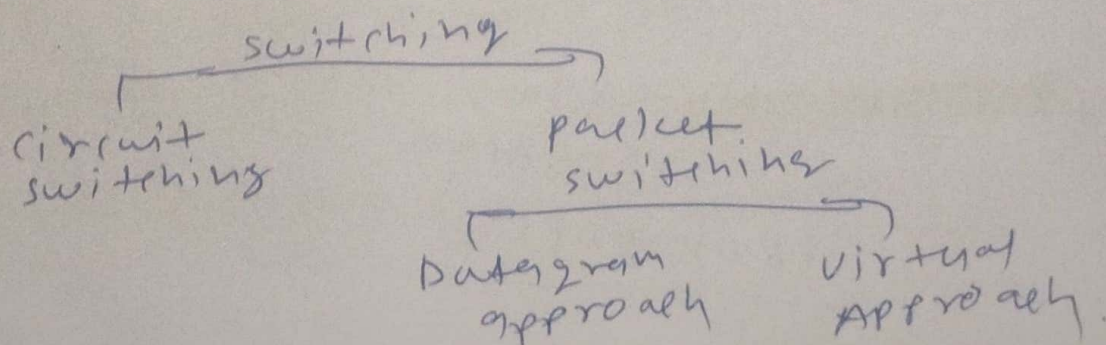 switching
circuit
switching
packet
switching
Datagram
approach
virtual
Approach